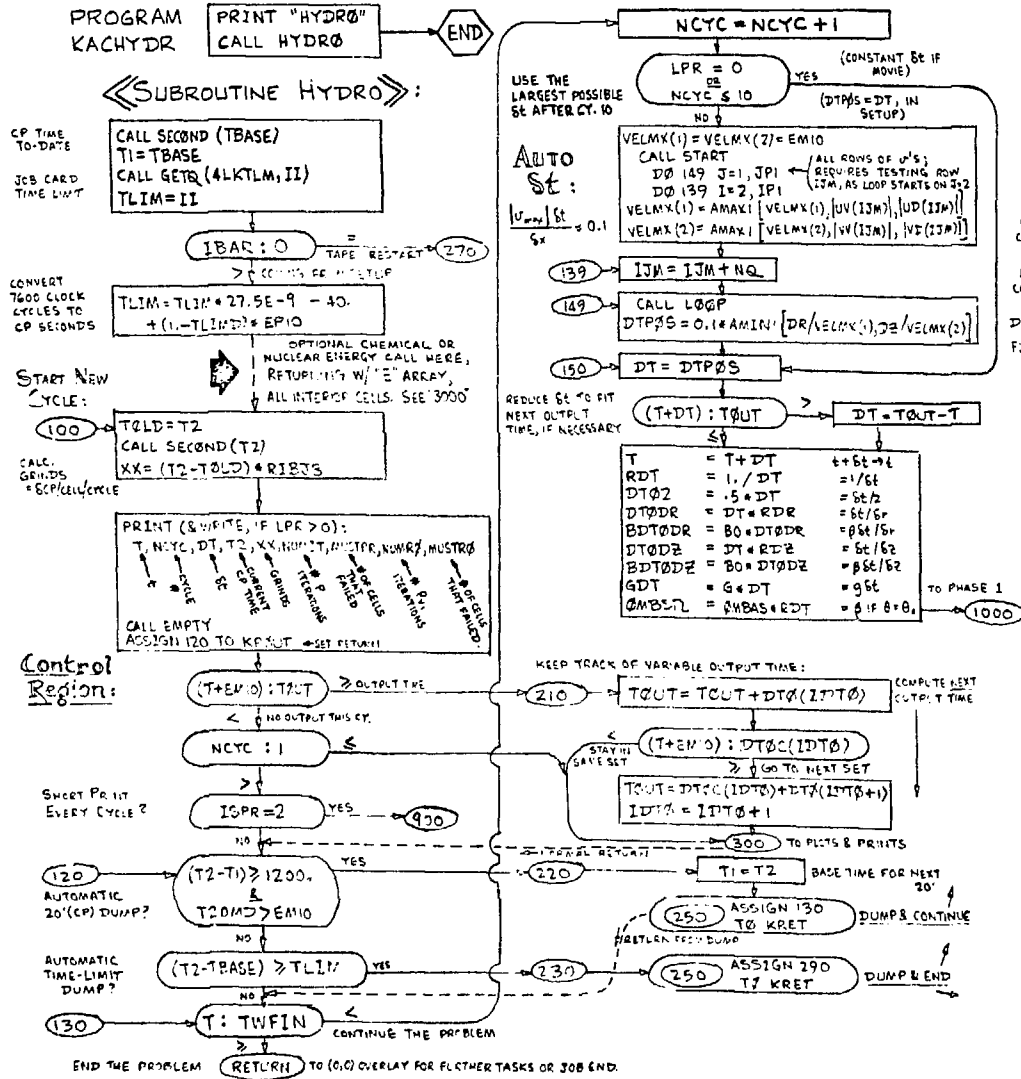 PROGRAM
KACHYDR
PRINT "HYDRØ"
CALL HYDRØ
END
≪SUBROUTINE HYDRO≫:
CP TIME
TO-DATE
JOB CARD
TIME LIMIT
CALL SECØND (TBASE)
T1 = TBASE
CALL GETQ (4LKTLM, II)
TLIM = II
IBAR : 0
=
TAPE RESTART
270
>
CONVERT
7600 CLOCK
CYCLES TO
CP SECONDS
TLIM = TLIM * 27.5E-9 - 40.
+ (1.-TLIMD) * EP10
OPTIONAL CHEMICAL OR
NUCLEAR ENERGY CALL HERE,
RETURNING W/ "E" ARRAY,
ALL INTERIOR CELLS. SEE "3000"
START NEW
CYCLE:
100
TØLD = T2
CALL SECØND (T2)
XX = (T2-TØLD) * RIBJS
CALC.
GRINDS
= δCP/CELL/CYCLE
PRINT (& WRITE, IF LPR > 0):
T, NCYC, DT, T2, XX, NUMIT, MUSTPR, NUMRØ, MUSTRØ
t
CYCLE #
δt
CURRENT CP TIME
GRINDS
# P ITERATIONS
# OF CELLS THAT FAILED
# ITERATIONS
# OF CELLS THAT FAILED
CALL EMPTY
ASSIGN 120 TO KRØUT ← SET RETURN
Control
Region:
(T+EM10) : TØUT
≥ OUTPUT TIME
210
< NO OUTPUT THIS CY.
NCYC : 1
≤
>
SHORT PRINT
EVERY CYCLE?
ISPR = 2
YES
900
NO
NORMAL RETURN
120
AUTOMATIC
20' (CP) DUMP?
(T2-T1) ≥ 1200.
&
T20MD > EM10
YES
220
NO
AUTOMATIC
TIME-LIMIT
DUMP?
(T2-TBASE) ≥ TLIM
YES
230
NO
130
T : TWFIN
<
CONTINUE THE PROBLEM
≥
END THE PROBLEM
RETURN
TO (0,0) OVERLAY FOR FURTHER TASKS OR JOB END.
NCYC = NCYC + 1
LPR = 0
OR
NCYC ≤ 10
YES
(CONSTANT δt IF
MOVIE)
(DTPØS = DT, IN
SETUP)
NO
USE THE
LARGEST POSSIBLE
δt AFTER CY. 10
AUTO
δt:
|υmax| δt / δx = 0.1
VELMX(1) = VELMX(2) = EM10
CALL START
DØ 149 J=2, JP1
DØ 139 I=2, IP1
ALL ROWS OF υ'S;
REQUIRES TESTING ROW
IJM, AS LOOP STARTS ON J=2
VELMX(1) = AMAX1 [VELMX(1), |UV(IJM)|, |UD(IJM)|]
VELMX(2) = AMAX1 [VELMX(2), |VV(IJM)|, |VD(IJM)|]
139
IJM = IJM + NQ
149
CALL LØØP
DTPØS = 0.1 * AMIN1 [DR/VELMX(1), DZ/VELMX(2)]
150
DT = DTPØS
REDUCE δt TO FIT
NEXT OUTPUT
TIME, IF NECESSARY
(T+DT) : TØUT
>
DT = TØUT - T
≤
T = T + DT t + δt → t
RDT = 1. / DT = 1/δt
DTØ2 = .5 * DT = δt/2
DTØDR = DT * RDR = δt/δr
BDTØDR = BO * DTØDR = βδt/δr
DTØDZ = DT * RDZ = δt/δz
BDTØDZ = BO * DTØDZ = βδt/δz
GDT = G * DT = gδt
TO PHASE 1
1000
KEEP TRACK OF VARIABLE OUTPUT TIME:
TØUT = TØUT + DTØ(IDTØ)
COMPUTE NEXT
OUTPUT TIME
(T+EM10) : DTØC(IDTØ)
<
STAY IN
SAME SET
≥ GO TO NEXT SET
TØUT = DTØC(IDTØ) + DTØ(IDTØ+1)
IDTØ = IDTØ + 1
300
TO PLOTS & PRINTS
T1 = T2
BASE TIME FOR NEXT
20'
250
ASSIGN 130
TØ KRET
DUMP & CONTINUE
RETURN FROM DUMP
250
ASSIGN 290
TØ KRET
DUMP & END